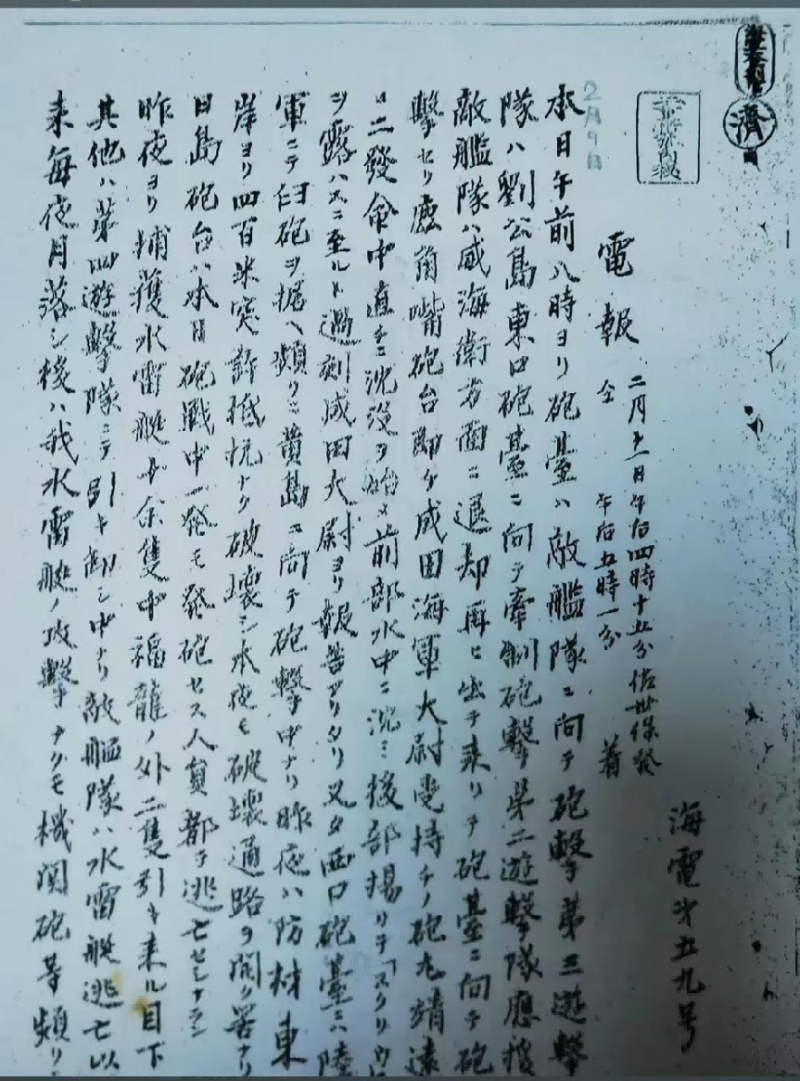 濟
海電第五九号
電報
二月十一日午后四時十五分佐世保發
仝 午后五時一分 着
2月9日
本日午前八時ヨリ砲臺ハ敵艦隊ニ向テ砲撃第三遊撃
隊ハ劉公島東口砲臺ニ向テ牽制砲撃第二遊撃隊應援
敵艦隊ハ威海衛方面ニ退却再ヒ出テ来リテ砲臺ニ向テ砲
撃セリ鹿角嘴砲台即チ成田海軍大尉受持チノ砲丸靖遠
ニ二發命中直チニ沈没ヲ始メ前部水中ニ沈ミ後部揚リテ「スクリウ」
ヲ露ハスニ至ルト過刻成田大尉ヨリ報告アリタリ又タ西口砲臺ニハ陸
軍ニテ臼砲ヲ据ヘ頻リニ黄島ニ向テ砲撃中ナリ昨夜ハ防材東
岸ヨリ四百米突許抵抗ナク破壊シ本夜モ破壊通路ヲ開ク筈ナリ
日島砲台ハ本日砲戦中一発モ発砲セス人員都テ逃亡セシナラン
昨夜ヨリ捕獲水雷艇十余隻中福龍ノ外二隻引キ来ル目下
其他ハ第四遊撃隊ニテ引キ卸シ中ナリ敵艦隊ハ水雷艇逃亡以
来毎夜月落シ後ハ我水雷艇ノ攻撃ナクモ機関砲等頻リニ